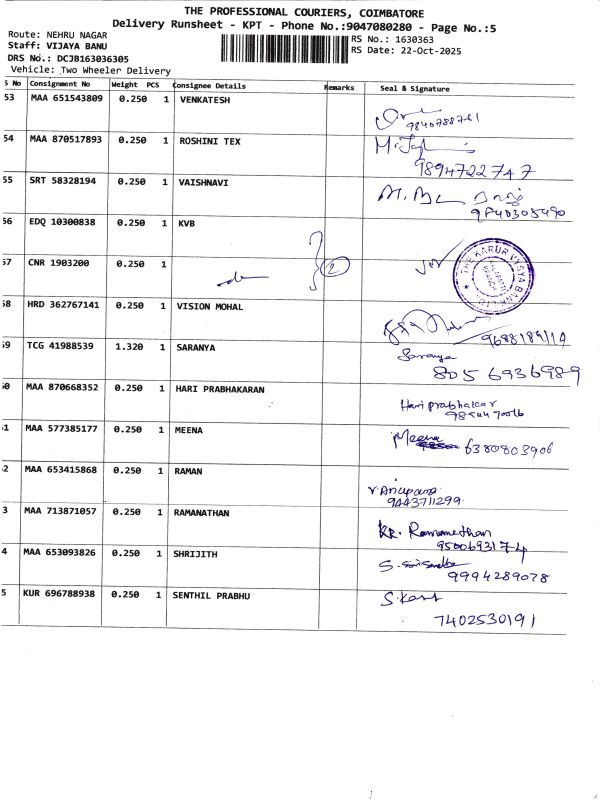 THE PROFESSIONAL COURIERS, COIMBATORE
Delivery Runsheet - KPT - Phone No.:9047080280 - Page No.:5
Route: NEHRU NAGAR
Staff: VIJAYA BANU
DRS No.: DCJB163036305
Vehicle: Two Wheeler Delivery
RS No.: 1630363
RS Date: 22-Oct-2025
S No Consignment No Weight PCS Consignee Details Remarks Seal & Signature
53 MAA 651543809 0.250 1 VENKATESH
54 MAA 870517893 0.250 1 ROSHINI TEX
9894722747
55 SRT 58328194 0.250 1 VAISHNAVI
56 EDQ 10300838 0.250 1 KVB
57 CNR 1903200 0.250 1 2
THE KARUR VYSYA BANK LTD
58 HRD 362767141 0.250 1 VISION MOHAL
59 TCG 41988539 1.320 1 SARANYA
Saranya
805 6936989
60 MAA 870668352 0.250 1 HARI PRABHAKARAN
Hari prabhakar
61 MAA 577385177 0.250 1 MEENA
Meena
6380803906
62 MAA 653415868 0.250 1 RAMAN
9443711299
63 MAA 713871057 0.250 1 RAMANATHAN
KR. Ramanathan
9500693174
64 MAA 653093826 0.250 1 SHRIJITH
9994289078
65 KUR 696788938 0.250 1 SENTHIL PRABHU
7402530191